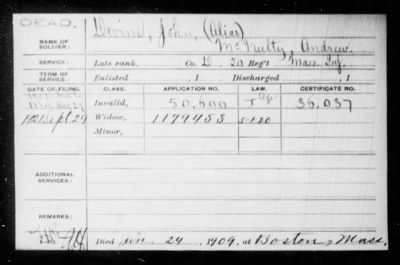 DEAD.
NAME OF SOLDIER: Devine, John, (Alias)
McNulty, Andrew.
SERVICE: Late rank, Co. D. 20 Reg't Mass. Inf.
TERM OF SERVICE: Enlisted , 1 Discharged , 1
DATE OF FILING. CLASS. APPLICATION NO. LAW. CERTIFICATE NO.
Invalid, 50.600 36.037
Sept 29 Widow, 1179453 5-1-20
Minor,
ADDITIONAL SERVICES:
REMARKS:
Died 24, 1909, at Boston, Mass.